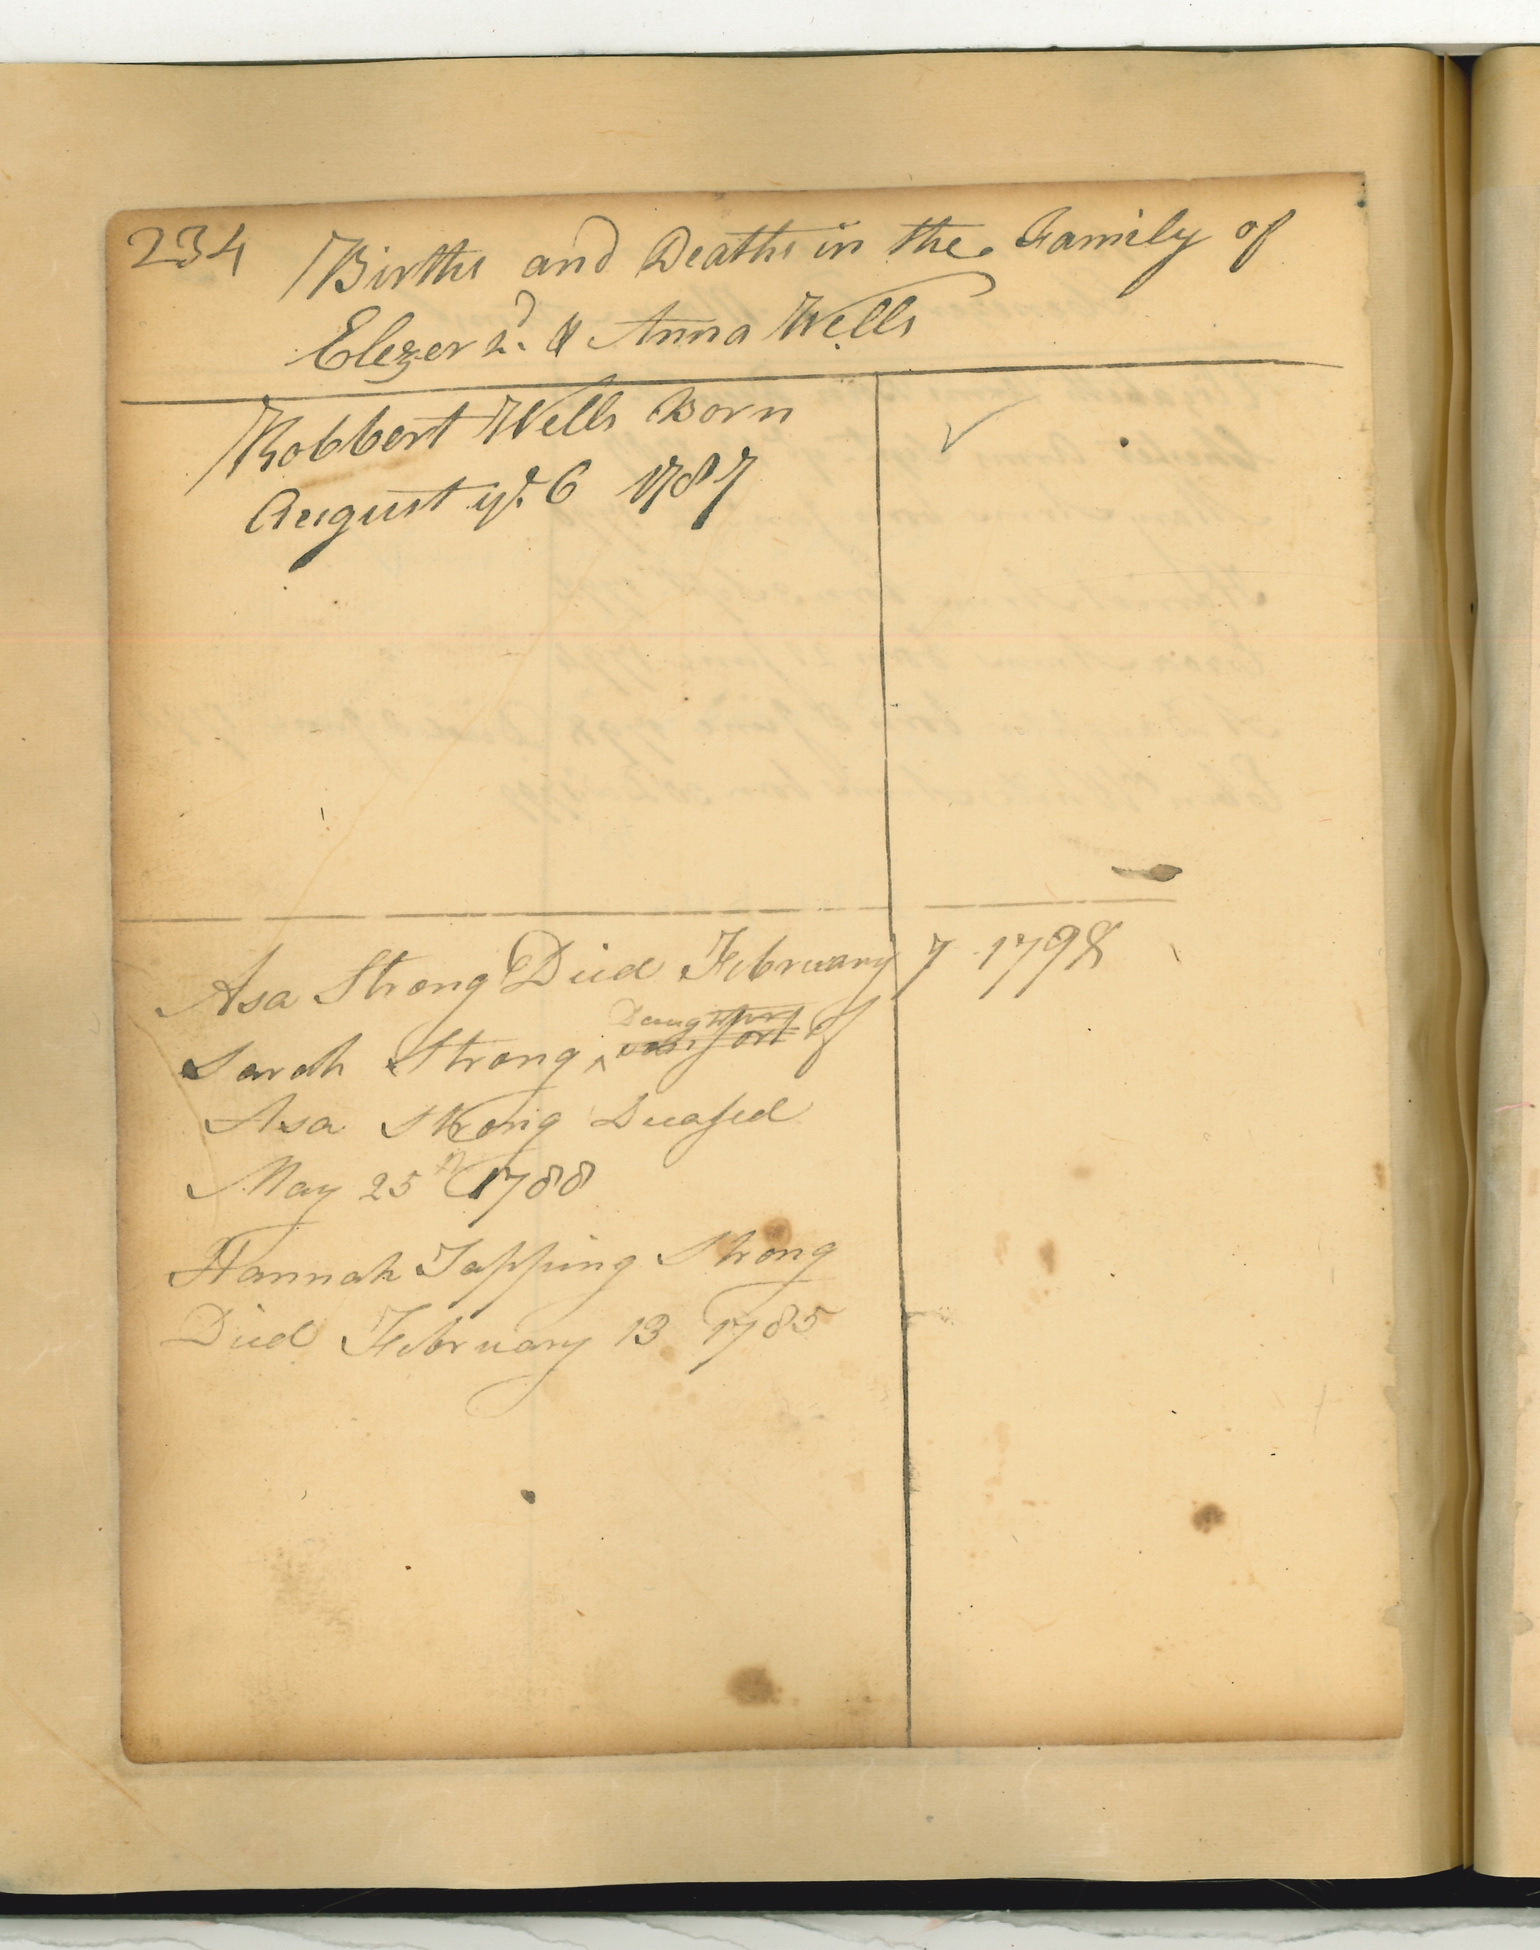 234 Births and Deaths in the Family of
Elezer 2d. & Anna Wells
Robbert Wells Born
August ye. 6 1787
Asa Strong Died February 7 1798
Daughter
Sarah Strong ^ of
Asa Strong Deceased
May 25th 1788
Hannah Tapping Strong
Died February 13 1785